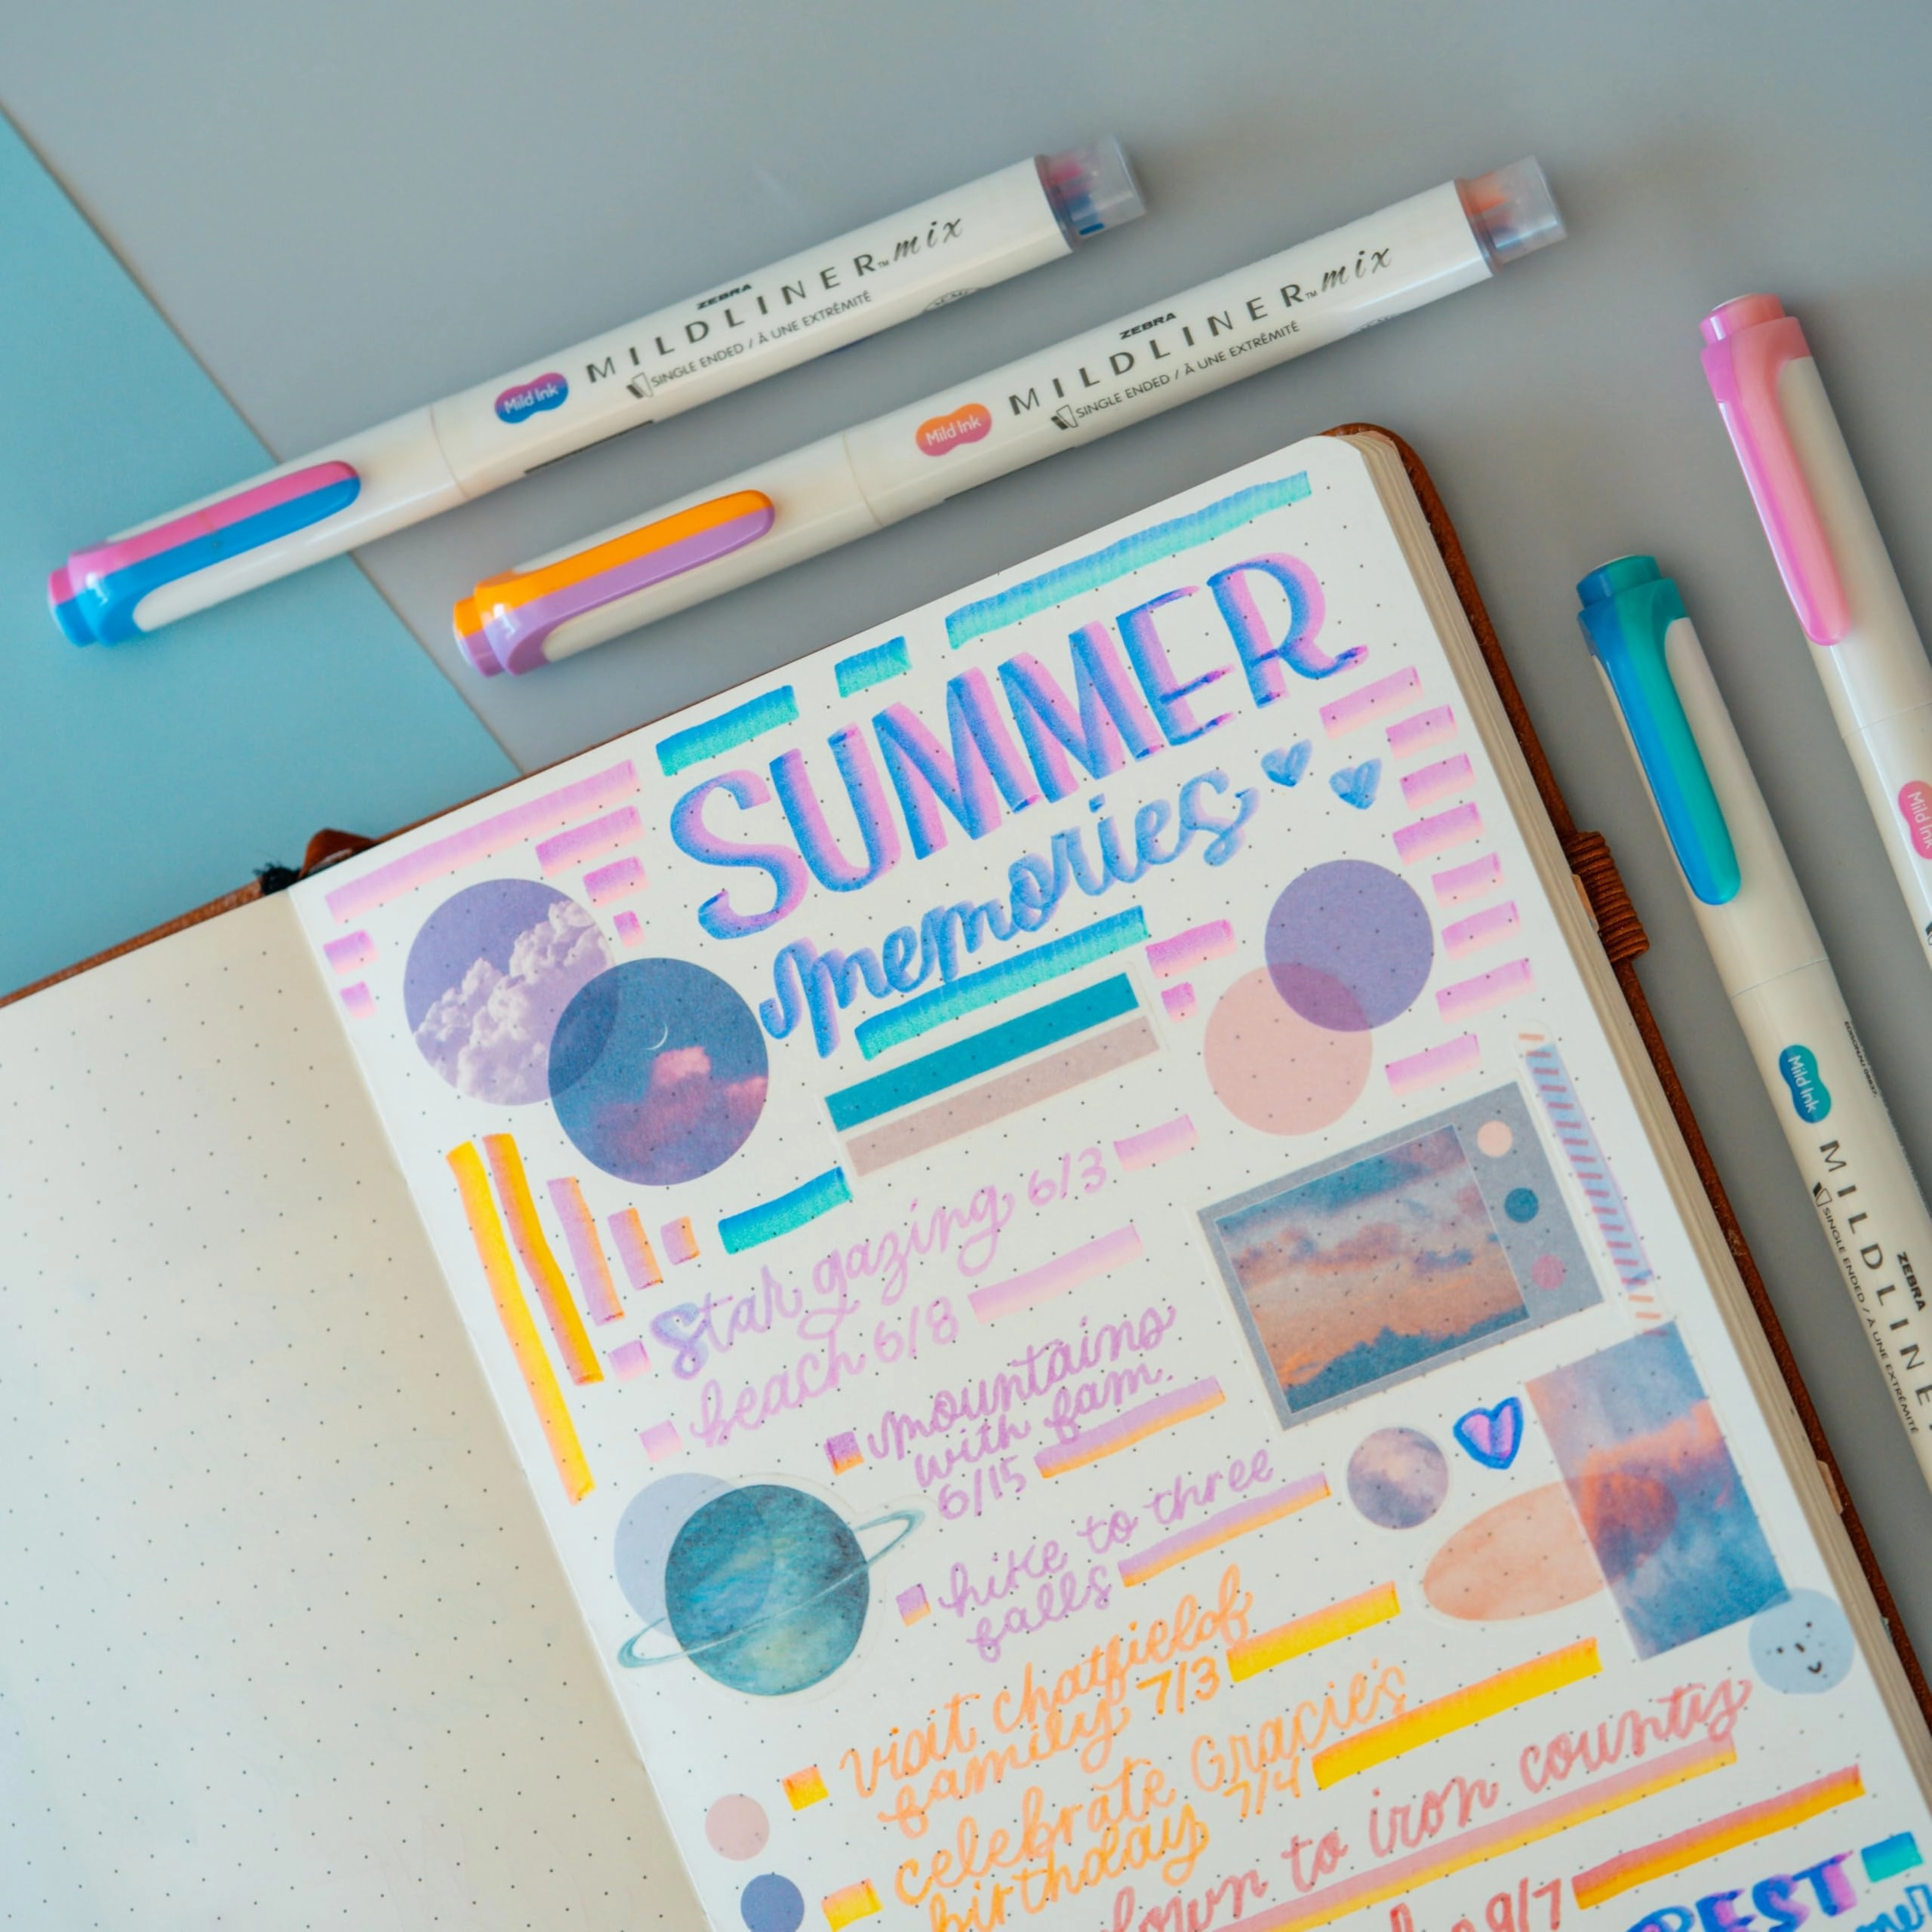 ZEBRA
MILDLINER™ mix
SINGLE ENDED / À UNE EXTRÉMITÉ
Mild Ink
ZEBRA
MILDLINER™ mix
SINGLE ENDED / À UNE EXTRÉMITÉ
Mild Ink
SUMMER
memories
Star gazing 6/3
beach 6/8
mountains
with fam.
6/15
hike to three
falls
visit chatfield
family 7/3
celebrate Gracie's
birthday 7/4
down to iron county
9/7
BEST
Mild Ink
Mild Ink
ZEBRA
MILDLINE
SINGLE ENDED / À UNE EXTRÉMITÉ